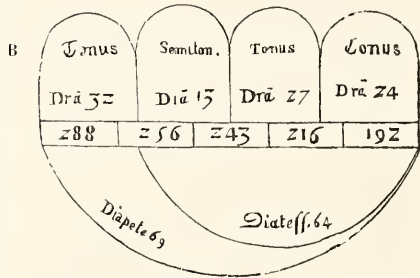 B
Tonus Semiton. Tonus Tonus
Drā 32 Diā 13 Drā 27 Drā 24
288 256 243 216 192
Diapete 69
Diatess. 64